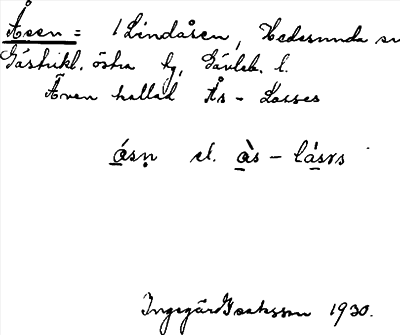 Åsen = / Lindåsen, Hedesunda sn
Gästrikl. östra tg, Gävleb. l.
Även kallad Ås - Lasses
ásn el. às - lásrs
Ingegärd Isaksson 1930.